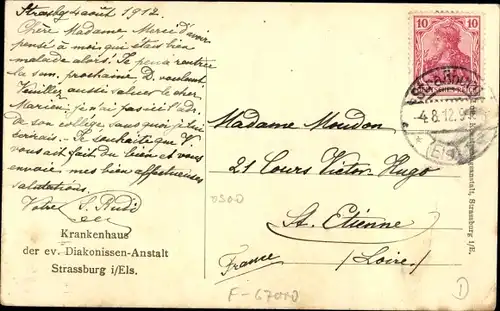 Strasbg 4 août 1912.
Chère Madame Merci d'avoir
pensé à moi qui étais bien
malade alors. Je peux rentrer
la sem. prochaine D. voulant.
Veuillez aussi saluer le cher
Marien; je n'ai pas ici l'adr.
de son collège sans quoi je lui
écrirais. Je souhaite que V.
vous ait fait du bien et vous
envoie mes bien affectueuses
salutations.
Votre S. Rudi
Krankenhaus
der ev. Diakonissen-Anstalt
Strassburg i/Els.
10 10
-4.8.12.9
(Els.)
Madame Moudon
21 Cours Victor Hugo
St. Etienne
(Loire)
France
0300
F-67000
1
anstalt, Strassburg i/E.